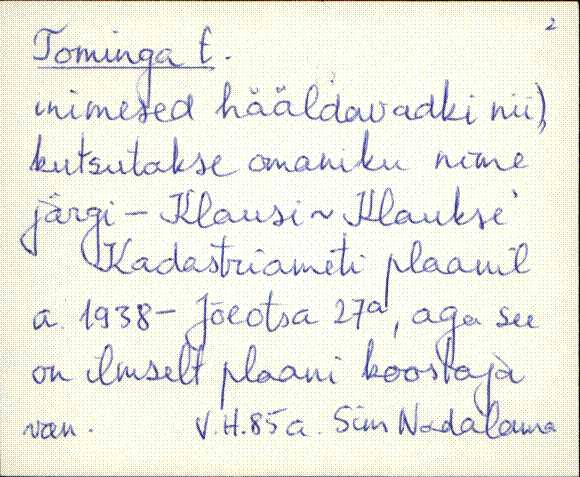 2
Tominga t.
inimesed hääldavadki nii),
kutsutakse omaniku nime
järgi – Klausi ~ Klaukse
Kadastriameti plaanil
a. 1938 – Jõeotsa 27a, aga see
on ilmselt plaani koostaja
V.H. 85 a. Siim